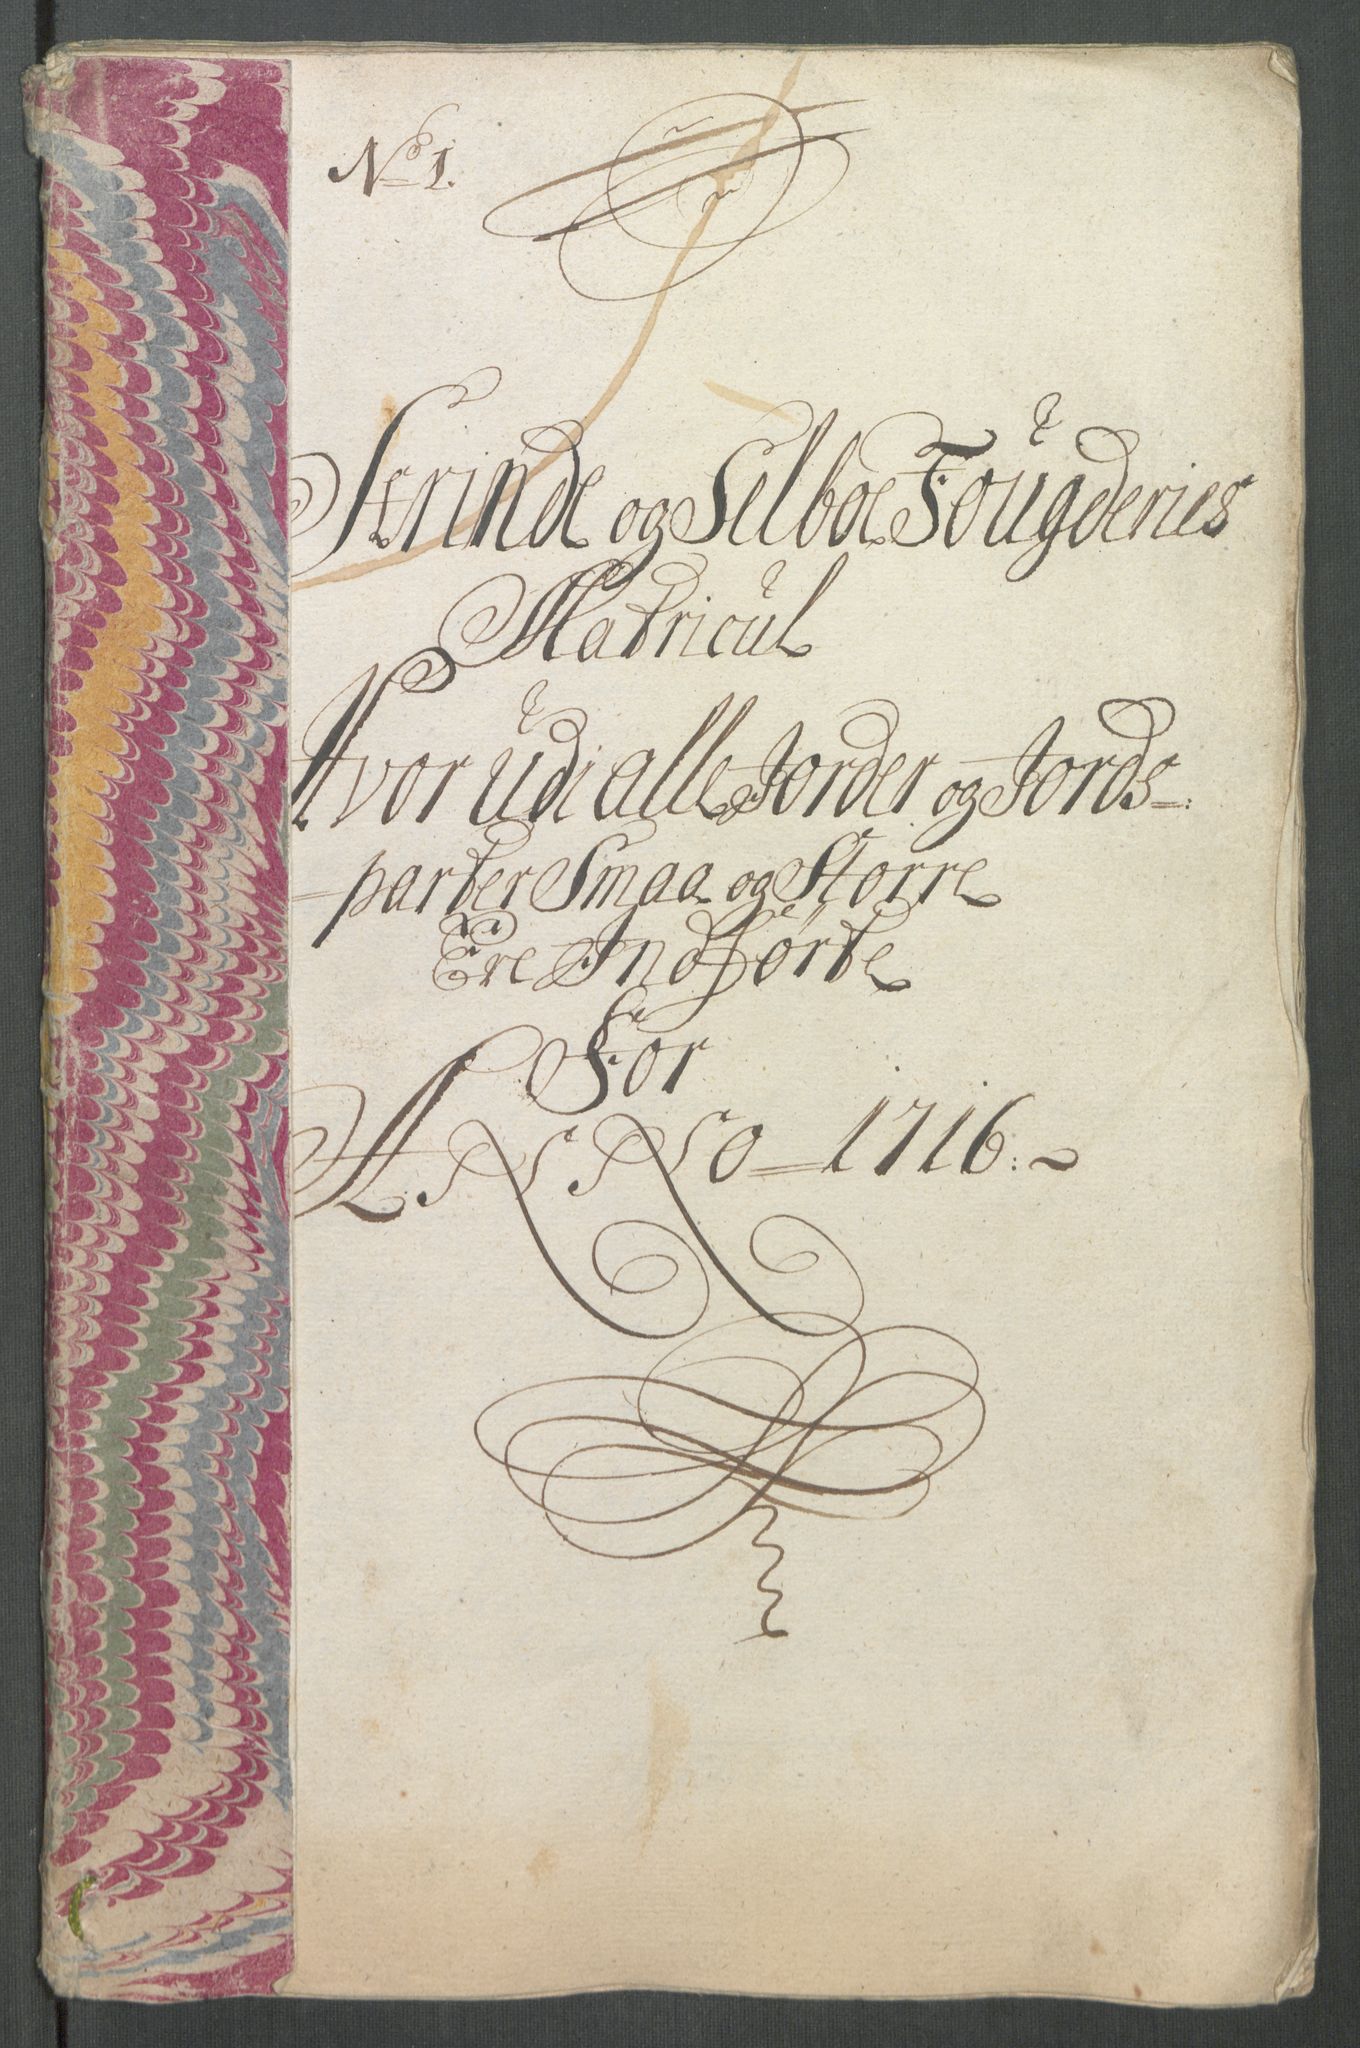 No 1.
Strinde og Selboe Foŭgderies
Matricŭl
Hvor ŭdi alle Jorder og Jords=
parter Smaa og Storre
Ere Indförte
For
ANNO = 1716.